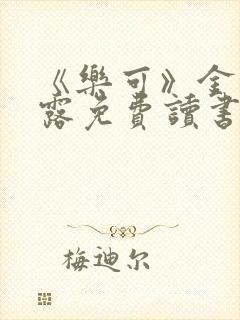 《樂可》金
露免費讀書
梅迪尔